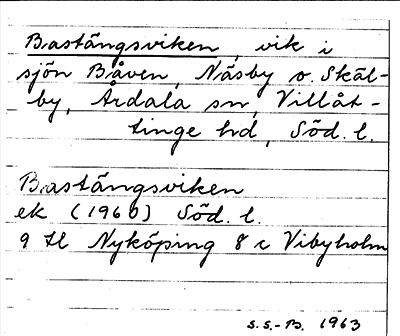 Bastängsviken, vik i
sjön Båven, Näsby o. Skäl-
by, Årdala sn, Villåt-
tinge hd, Söd. l.
Bastängsviken
ek (1960) Söd. l.
9 H Nyköping 8 c Vibyholm
S.S.-B. 1963